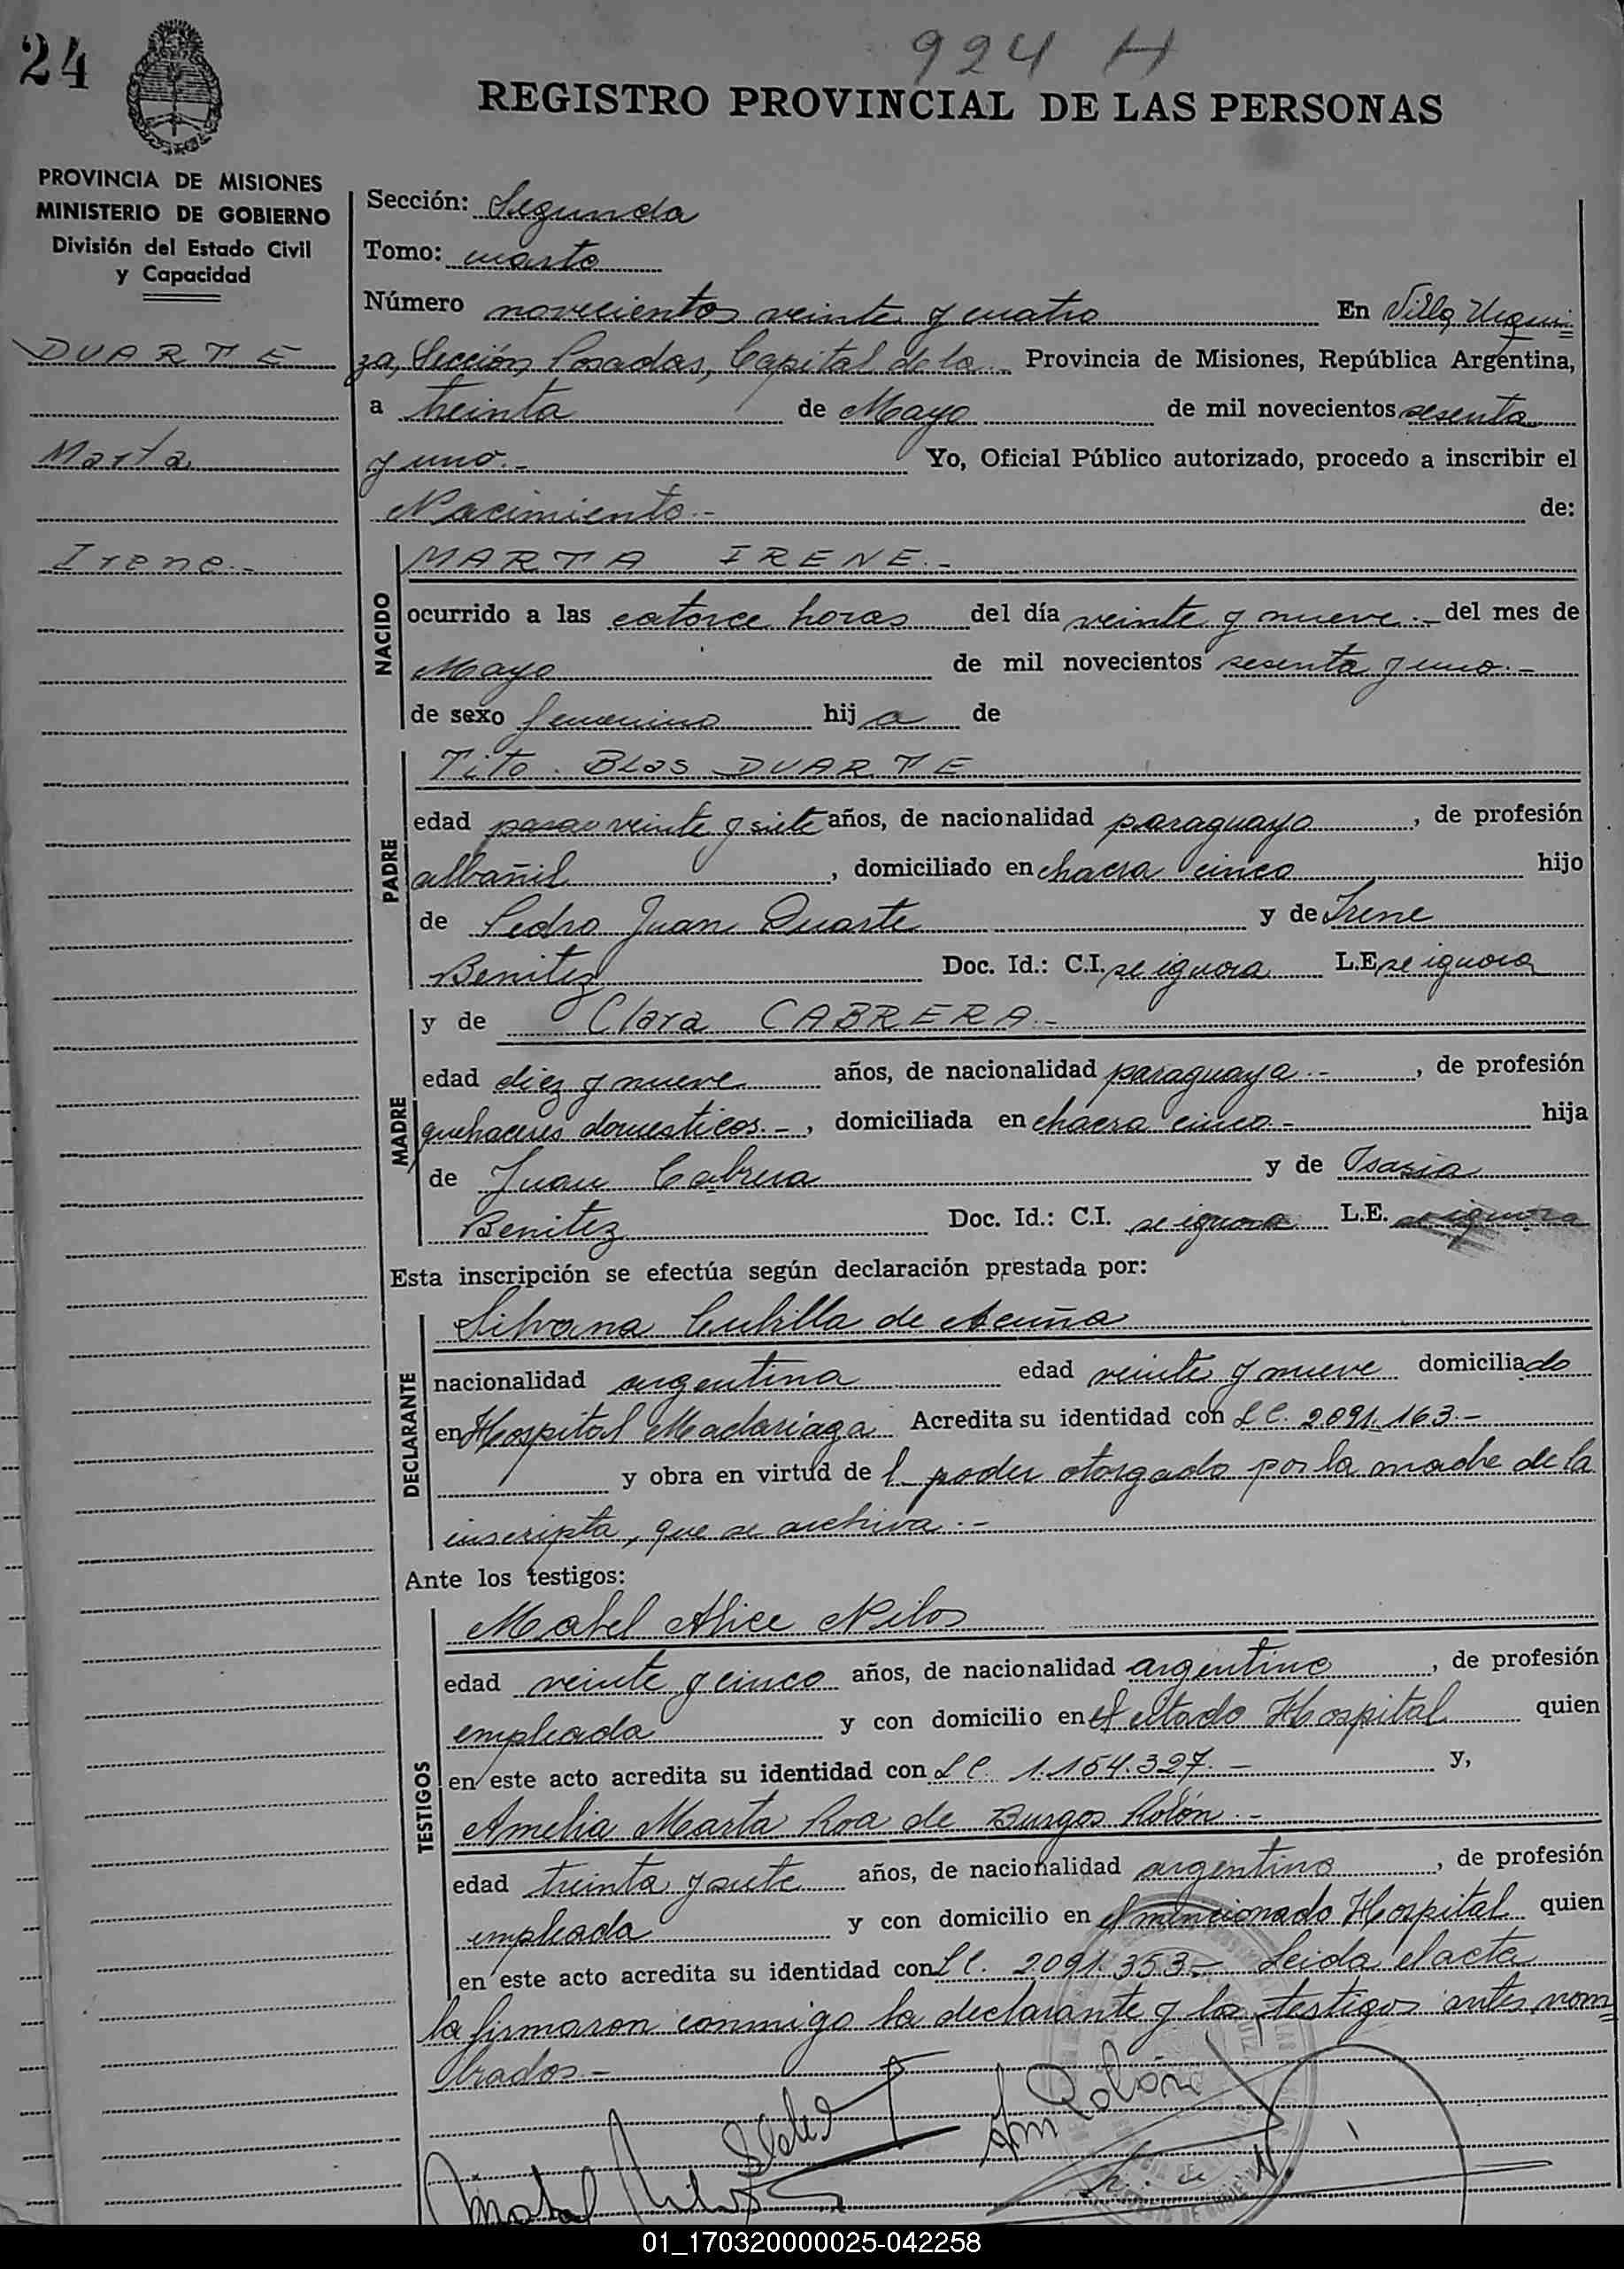 924 H
24
REGISTRO PROVINCIAL DE LAS PERSONAS
PROVINCIA DE MISIONES
MINISTERIO DE GOBIERNO
División del Estado Civil
y Capacidad
DUARTE
Marta
Irene.-
Sección: Segunda
Tomo: cuarto
Número novecientos veinte y cuatro En Villa Urqui=
za, Sección Posadas, Capital de la Provincia de Misiones, República Argentina,
a treinta de Mayo de mil novecientos sesenta
y uno.- Yo, Oficial Público autorizado, procedo a inscribir el
Nacimiento.- de:
NACIDO
MARTA IRENE.-
ocurrido a las catorce horas del día veinte y nueve.- del mes de
Mayo de mil novecientos sesenta y uno.-
de sexo femenino hija de
PADRE
Tito Blas DUARTE
edad veinte y siete años, de nacionalidad paraguayo, de profesión
albañil, domiciliado en chacra cinco hijo
de Pedro Juan Duarte y de Irene
Benitez Doc. Id.: C.I. se ignora L.E. se ignora
MADRE
y de Clara CABRERA.-
edad diez y nueve años, de nacionalidad paraguaya.-, de profesión
quehaceres domesticos.-, domiciliada en chacra cinco.- hija
de Juan Cabrera y de Isasia
Benitez Doc. Id.: C.I. se ignora L.E. se ignora
Esta inscripción se efectúa según declaración prestada por:
DECLARANTE
Silvana Cubilla de Acuña
nacionalidad argentina edad veinte y nueve domiciliado
en Hospital Madariaga Acredita su identidad con L C. 2.091.163.-
y obra en virtud de l poder otorgado por la madre de la
inscripta, que se archiva.-
Ante los testigos:
TESTIGOS
Mabel Alice Nilos
edad veinte y cinco años, de nacionalidad argentina, de profesión
empleada y con domicilio en el citado Hospital quien
en este acto acredita su identidad con L C. 1.154.327.- y,
Amelia Marta Roa de Burgos Rolón.-
edad treinta y siete años, de nacionalidad argentina, de profesión
empleada y con domicilio en el mencionado Hospital quien
en este acto acredita su identidad con L C. 2091.353.- Leida el acta
la firmaron conmigo la declarante y los testigos antes nom=
brados.-
Mabel Nilos
Am Rolón
01_170320000025-042258